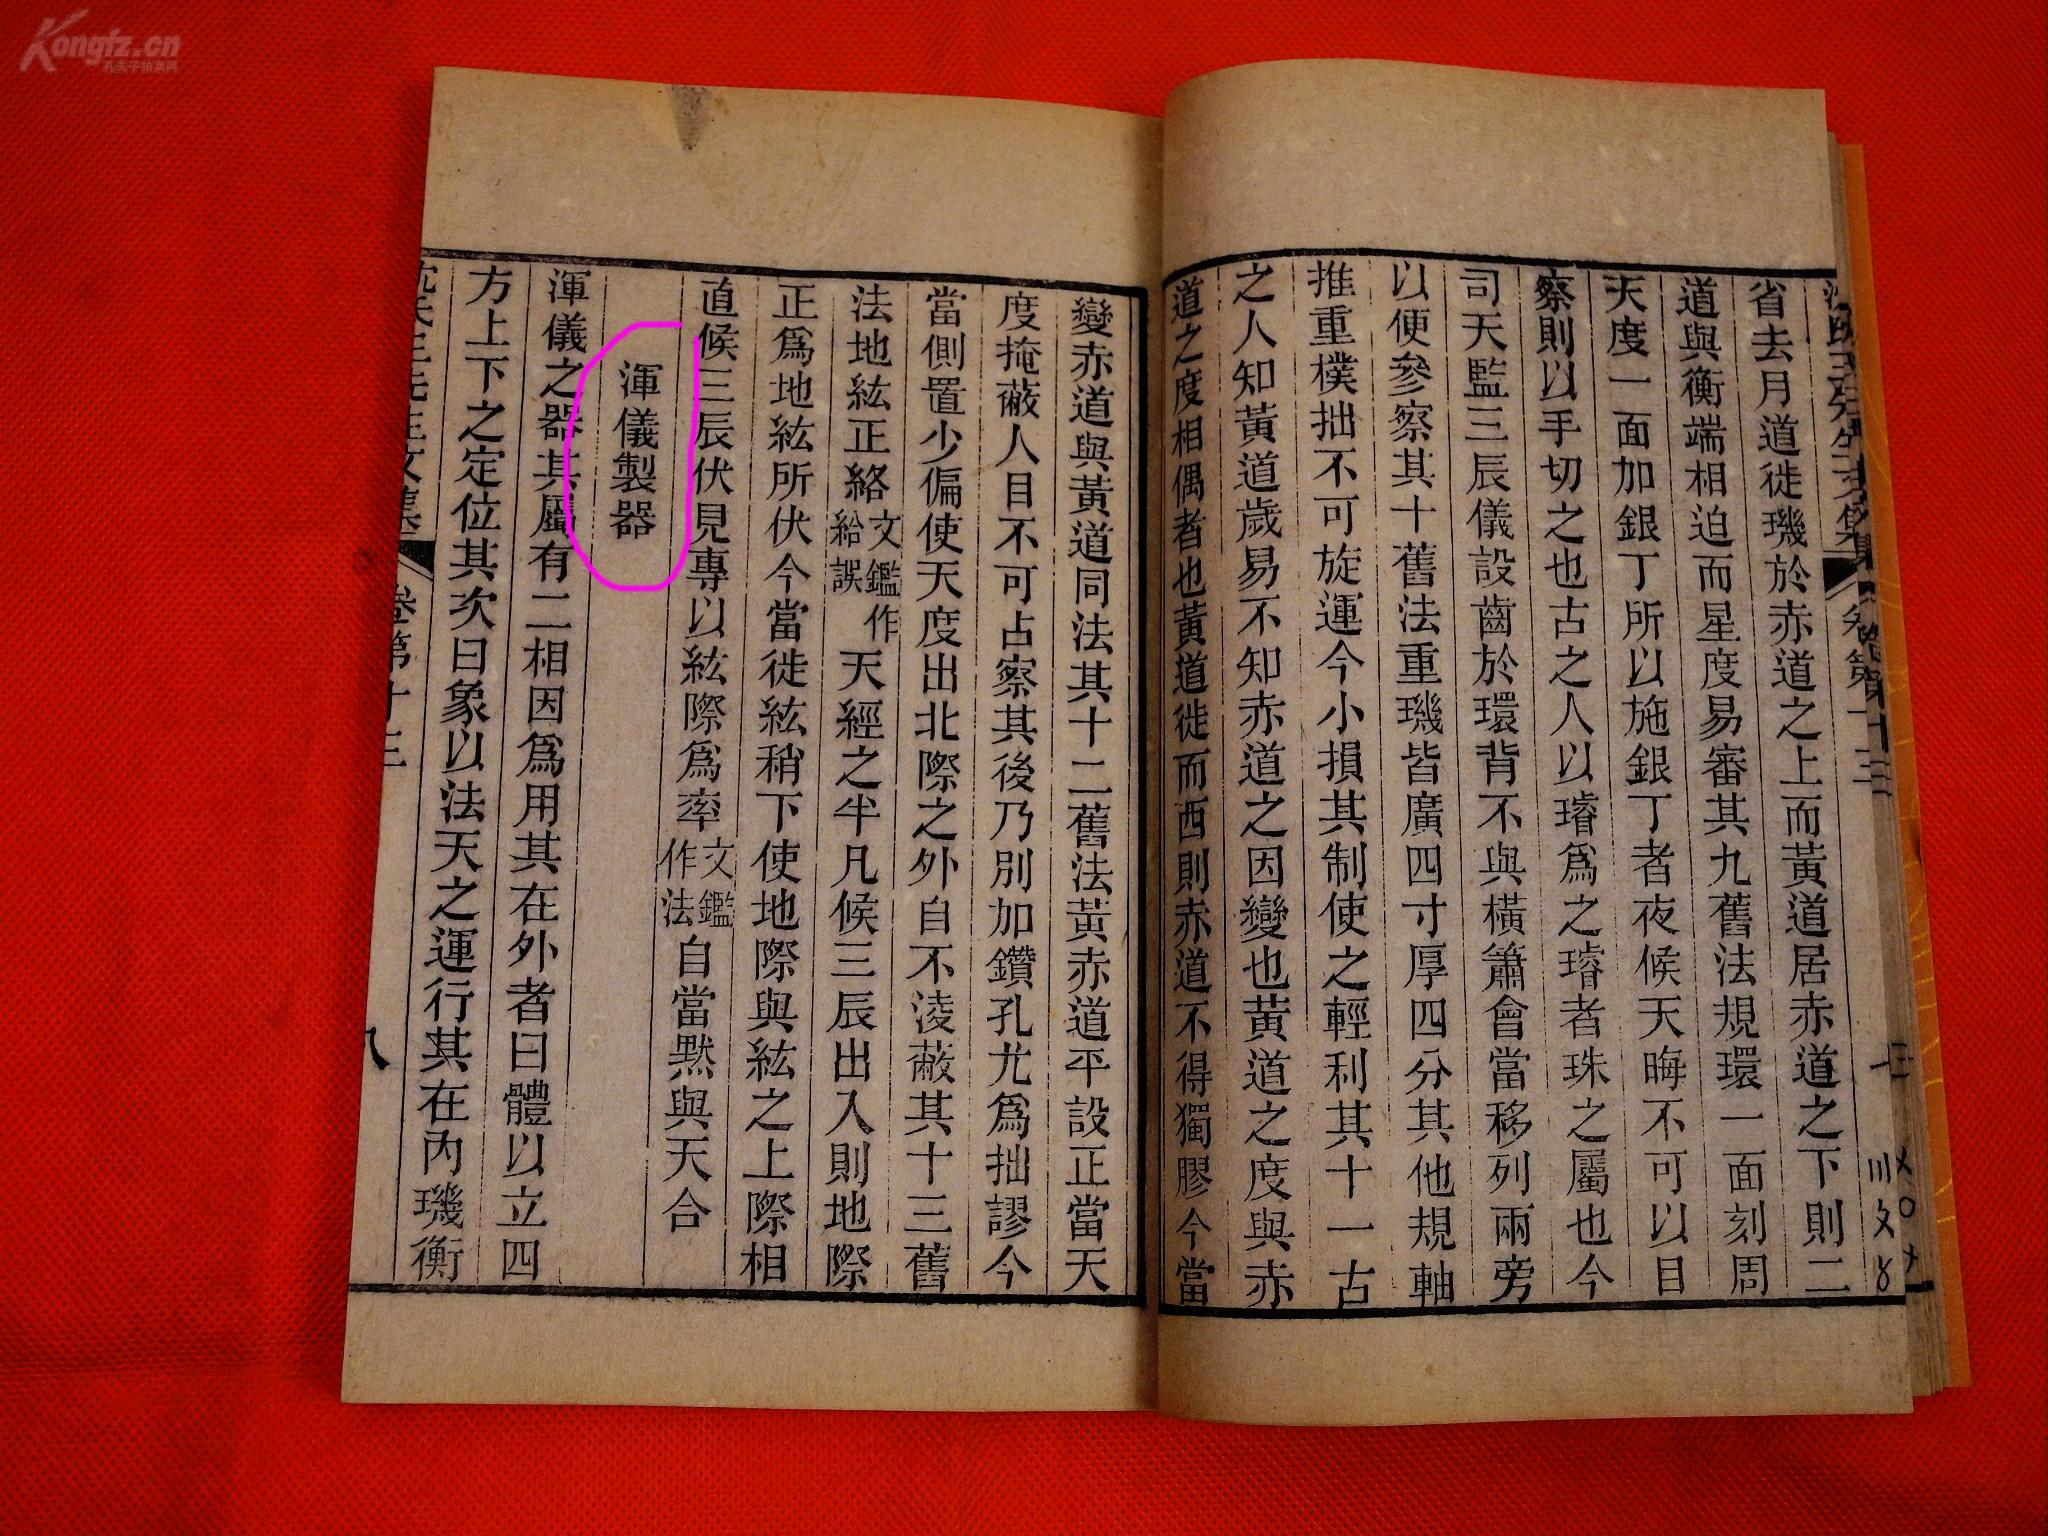 Kongfz.cn
孔夫子拍卖网
省去月道徙璣於赤道之上而黃道居赤道之下則二
道與衡端相迫而星度易審其九舊法規環一面刻周
天度一面加銀丁所以施銀丁者夜候天晦不可以目
察則以手切之也古之人以璿爲之璿者珠之屬也今
司天監三辰儀設齒於環背不與橫簫會當移列兩旁
以便參察其十舊法重璣皆廣四寸厚四分其他規軸
推重樸拙不可旋運今小損其制使之輕利其十一古
之人知黃道歲易不知赤道之因變也黃道之度與赤
道之度相偶者也黃道徙而西則赤道不得獨膠今當
變赤道與黃道同法其十二舊法黃赤道平設正當天
度掩蔽人目不可占察其後乃別加鑽孔尤爲拙謬今
當側置少偏使天度出北際之外自不淩蔽其十三舊
法地紘正絡文鑑作給誤天經之半凡候三辰出入則地際
正爲地紘所伏今當徙紘稍下使地際與紘之上際相
直候三辰伏見專以紘際爲率文鑑作法自當默與天合
渾儀製器
渾儀之器其屬有二相因爲用其在外者曰體以立四
方上下之定位其次曰象以法天之運行其在內璣衡
氏三先生文集 卷第十三
八